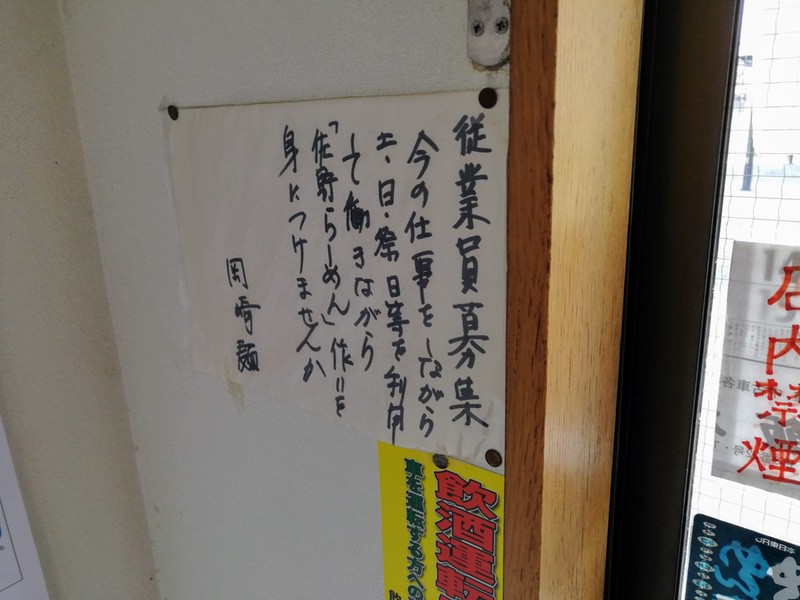 従業員募集
今の仕事をしながら
土、日、祭日等を利用
して働きながら
「佐野らーめん」作りを
身につけませんか
岡崎麺
飲酒運転
車を運転する方への
店内禁煙